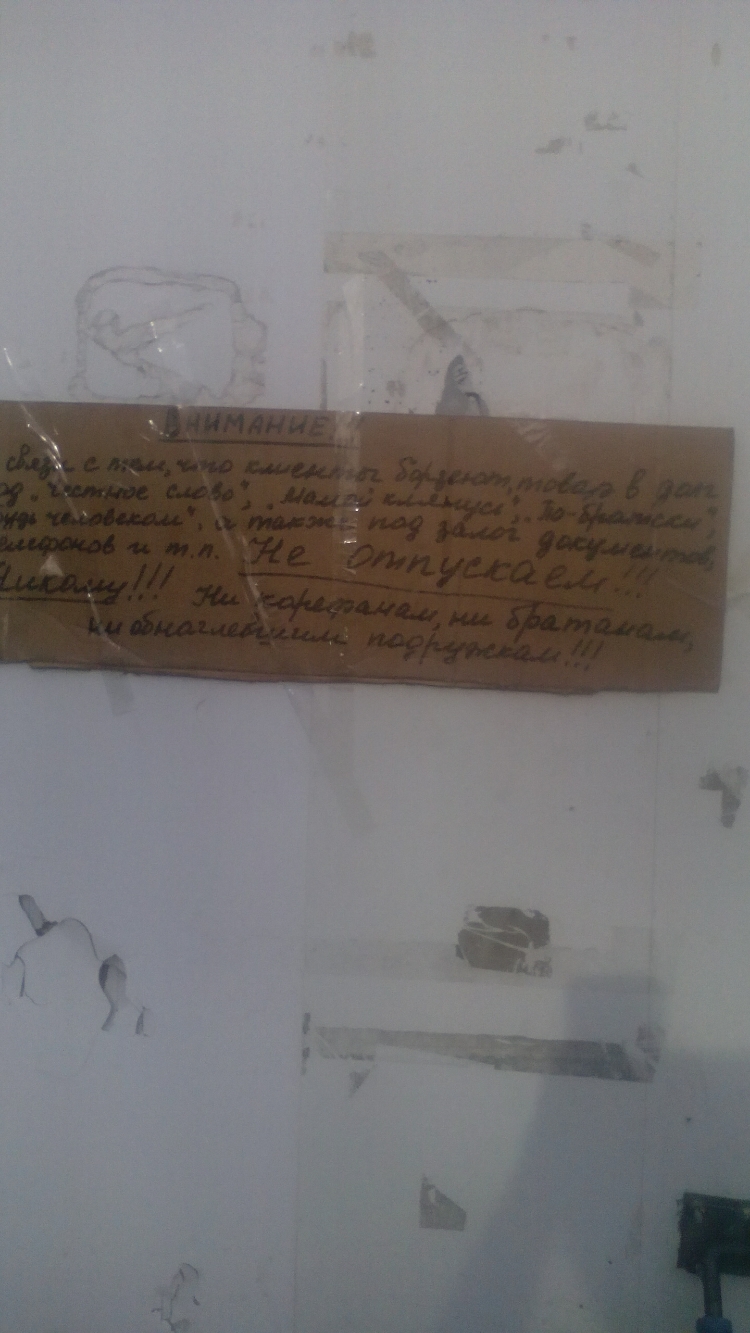 ВНИМАНИЕ!!!
связи с тем, что клиенты борзеют, товар в долг
од „честное слово", „мамой клянусь", „По-братски",
удь человеком", а также под залог документов,
елефонов и т.п. Не отпускаем!!!
Никому!!! Ни корефанам, ни братанам,
ни обнаглевшим подружкам!!!